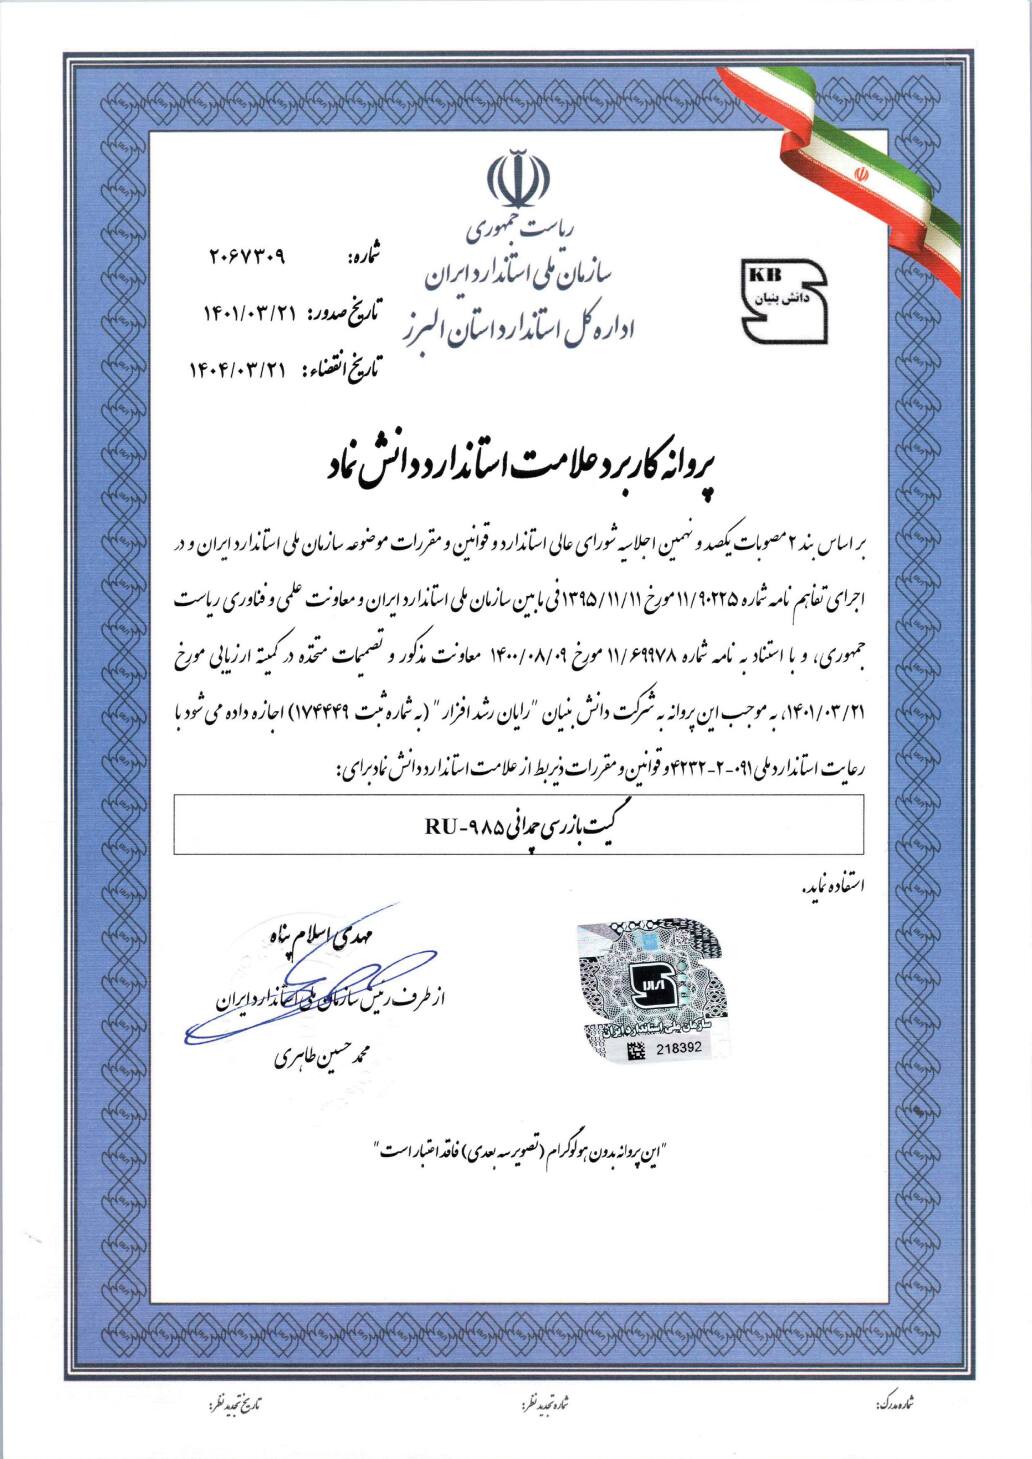 ریاست جمهوری
سازمان ملی استاندارد ایران
اداره کل استاندارد استان البرز
شماره: ۲۰۶۷۳۰۹
تاریخ صدور: ۱۴۰۱/۰۳/۲۱
تاریخ انقضاء: ۱۴۰۴/۰۳/۲۱
KB
دانش بنیان
پروانه کاربرد علامت استاندارد دانش نماد
بر اساس بند ۲ مصوبات یکصد و نهمین اجلاسیه شورای عالی استاندارد و قوانین و مقررات موضوعه سازمان ملی استاندارد ایران و در
اجرای تفاهم نامه شماره ۱۱/۹۰۲۲۵ مورخ ۱۳۹۵/۱۱/۱۱ فی مابین سازمان ملی استاندارد ایران و معاونت علمی و فناوری ریاست
جمهوری، و با استناد به نامه شماره ۱۱/۶۹۹۷۸ مورخ ۱۴۰۰/۰۸/۰۹ معاونت مذکور و تصمیمات متخذه در کمیته ارزیابی مورخ
۱۴۰۱/۰۳/۲۱، به موجب این پروانه به شرکت دانش بنیان "رایان رشد افزار" (به شماره ثبت ۱۷۴۴۴۹) اجازه داده می شود با
رعایت استاندارد ملی ۰۹۱-۲-۴۲۳۲ و قوانین و مقررات ذیربط از علامت استاندارد دانش نماد برای:
گیت بازرسی چمدانی RU-۹۸۵
استفاده نماید.
مهدی اسلام پناه
از طرف رئیس سازمان ملی استاندارد ایران
محمد حسین طاهری
ایران
سازمان ملی استاندارد ایران
218392
"این پروانه بدون هولوگرام (تصویر سه بعدی) فاقد اعتبار است"
شماره مدرک:
شماره تجدید نظر:
تاریخ تجدید نظر: